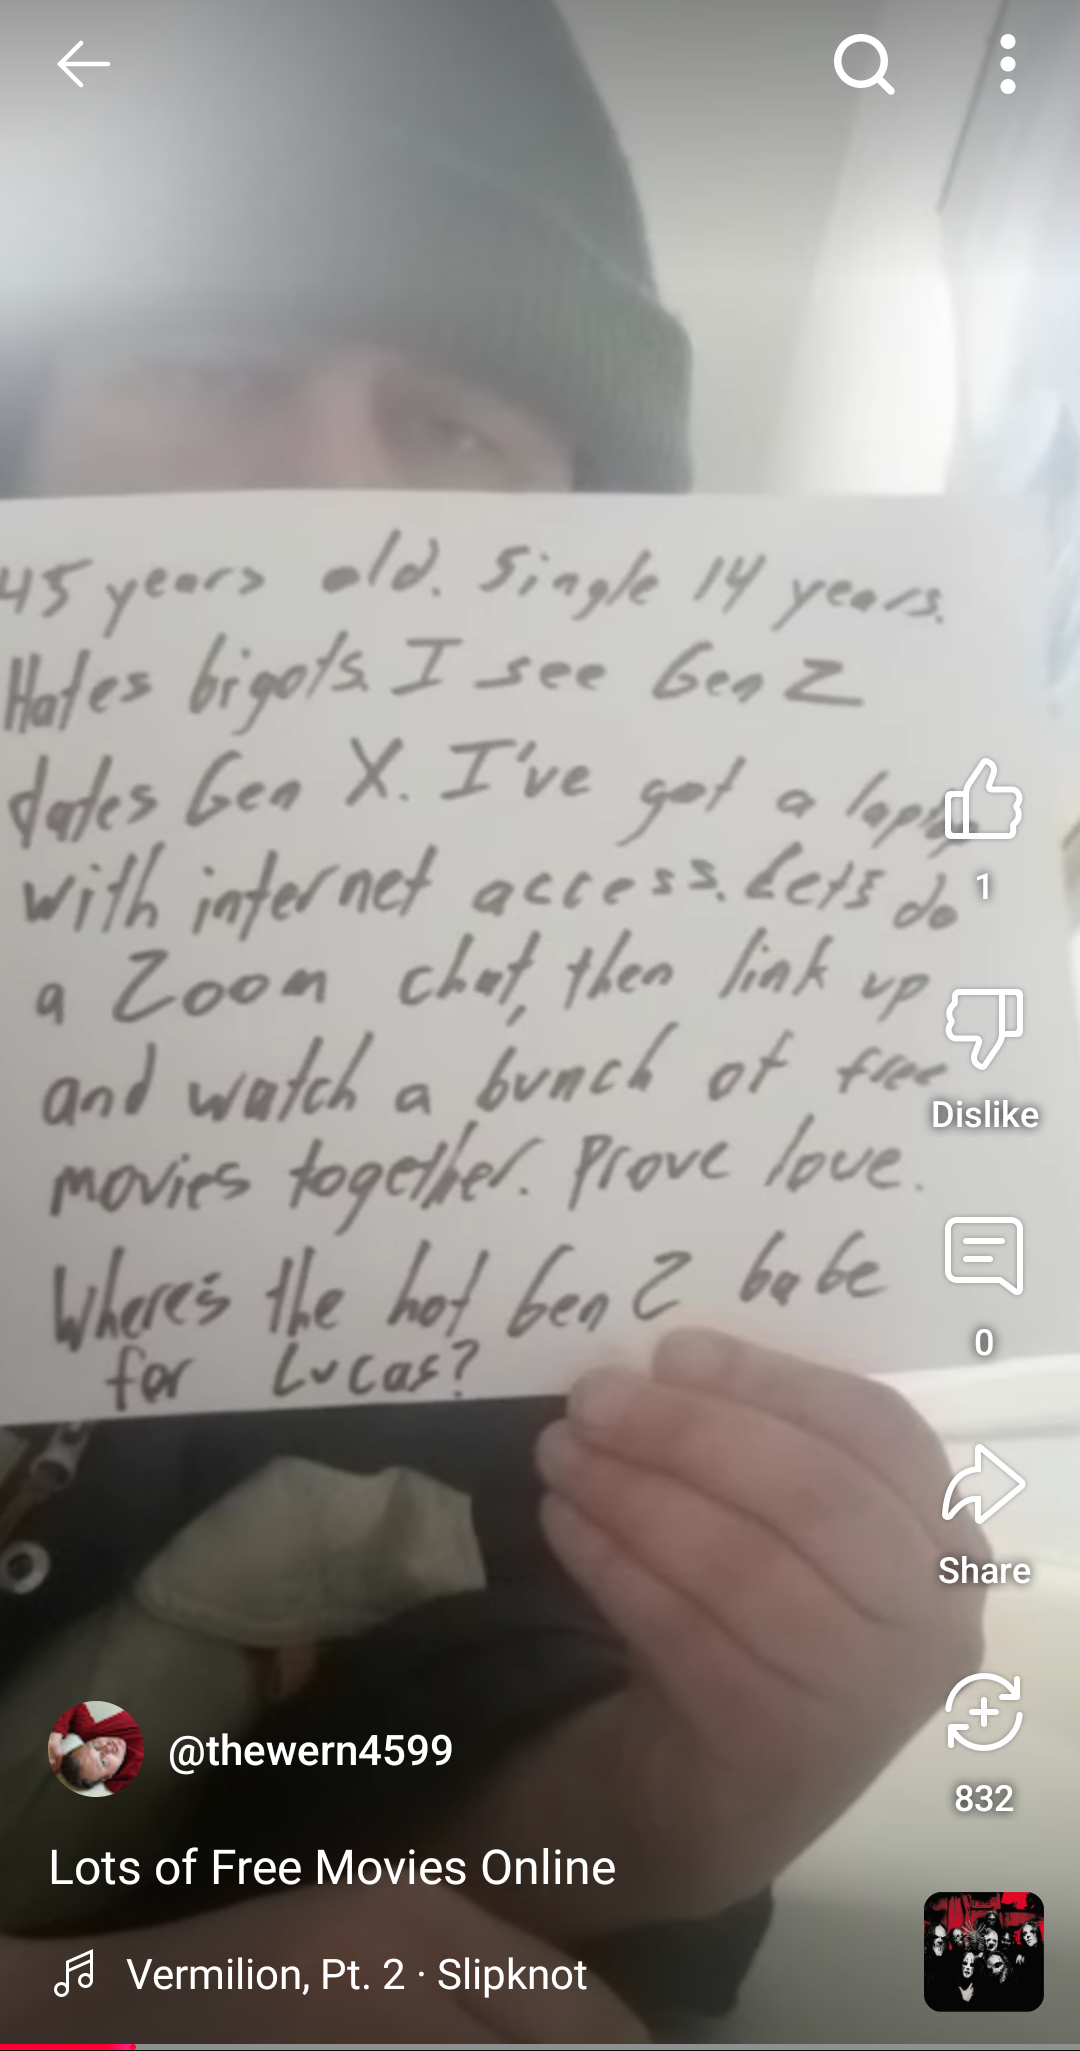 45 years old. Single 14 years.
Hates bigots. I see Gen Z
dates Gen X. I've got a laptop
with internet access. Lets do
a Zoom chat, then link up
and watch a bunch of free
movies together. Prove love.
Where's the hot Gen Z babe
for Lucas?
1
Dislike
0
Share
832
@thewern4599
Lots of Free Movies Online
Vermilion, Pt. 2 · Slipknot